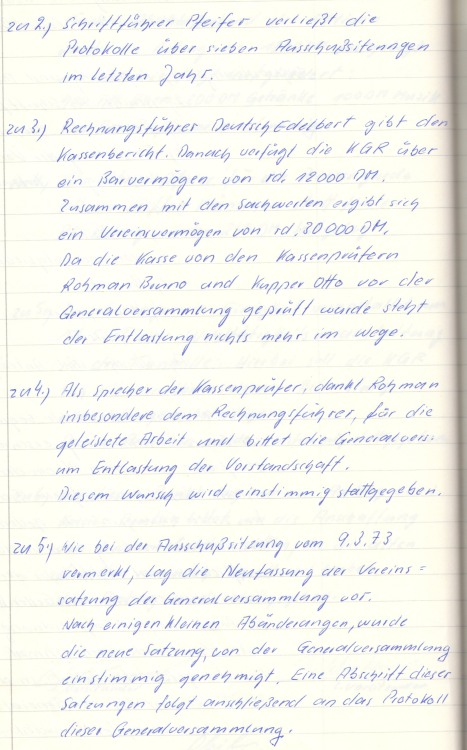 zu 2.) Schriftführer Pfeifer verließt die
Protokolle über sieben Ausschußsitzungen
im letzten Jahr.
zu 3.) Rechnungsführer Deutsch Edelbert gibt den
Kassenbericht. Danach verfügt die KGR über
ein Barvermögen von rd. 12000 DM.
Zusammen mit den Sachwerten ergibt sich
ein Vereinsvermögen von rd. 30000 DM.
Da die Kasse von den Kassenprüfern
Rohman Bruno und Kupper Otto vor der
Generalversammlung geprüft wurde steht
der Entlastung nichts mehr im Wege.
zu 4.) Als Sprecher der Kassenprüfer, dankt Rohmann
insbesondere dem Rechnungsführer, für die
geleistete Arbeit und bittet die Generalvers.
um Entlastung der Vorstandschaft.
Diesem Wunsch wird einstimmig stattgegeben.
zu 5.) Wie bei der Ausschußsitzung vom 9.3.73
vermerkt, lag die Neufassung der Vereins=
satzung der Generalversammlung vor.
Nach einigen kleinen Abänderungen, wurde
die neue Satzung, von der Generalversammlung
einstimmig genehmigt. Eine Abschrift dieser
Satzungen folgt anschließend an das Protokoll
dieser Generalversammlung.